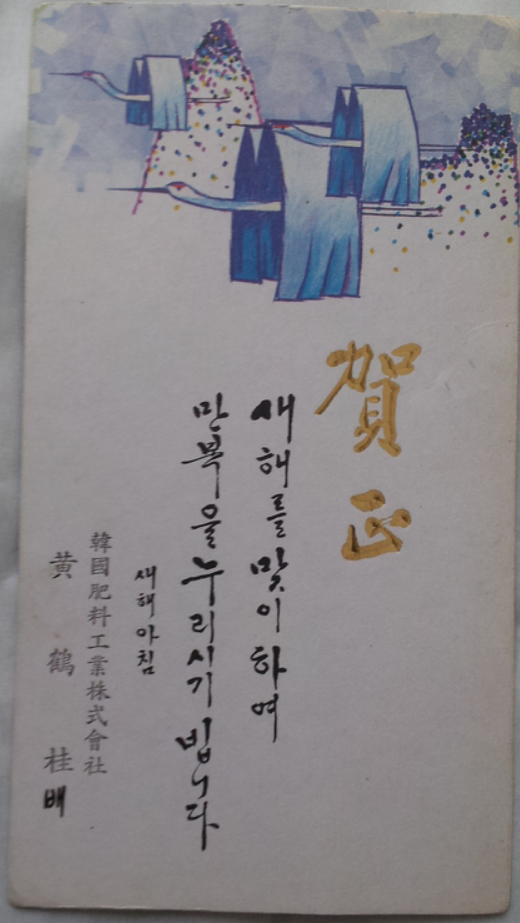 賀正
새해를 맞이하여
만복을 누리시기 빕니다
새해아침
韓國肥料工業株式會社
黃鶴桂 배